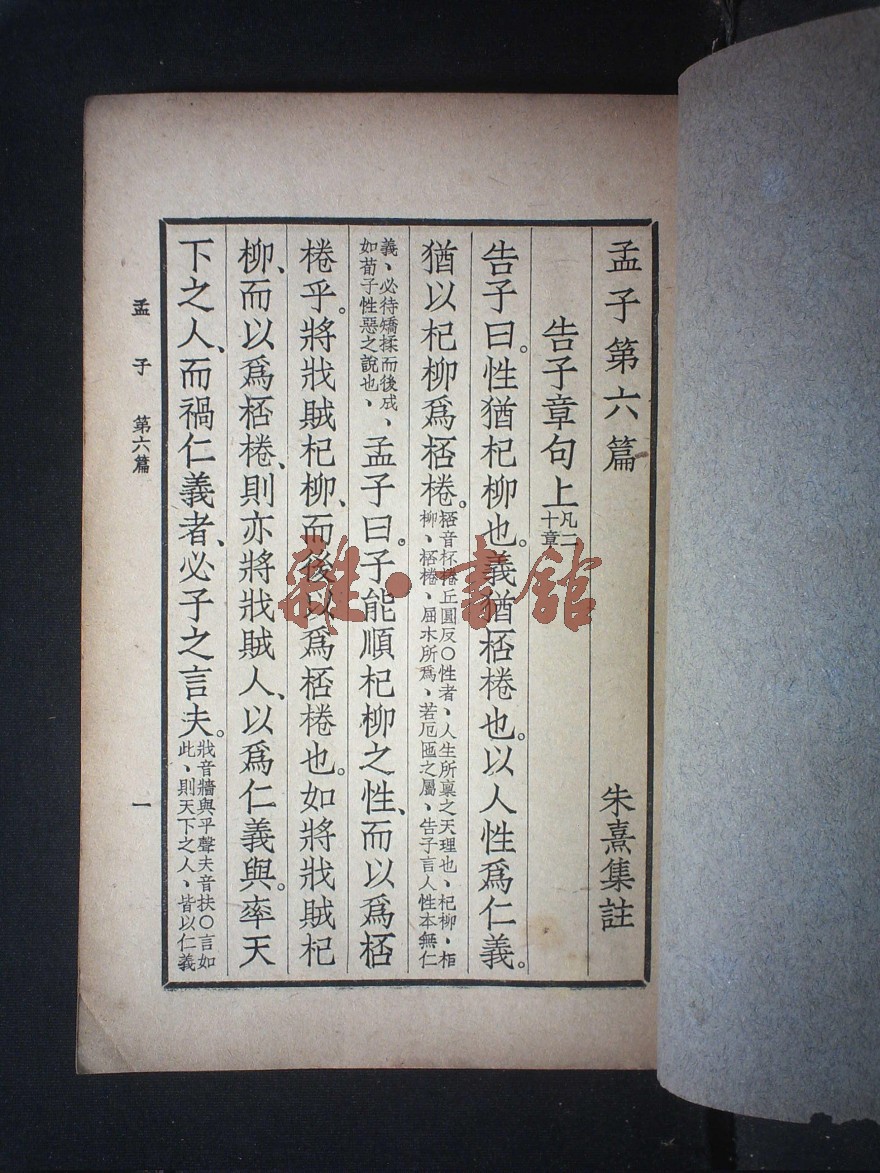 孟子第六篇　朱熹集註
告子章句上凡二十章
告子曰。性猶杞柳也。義猶桮棬也。以人性爲仁義。
猶以杞柳爲桮棬。桮音杯棬丘圓反〇性者、人生所稟之天理也、杞柳、柜柳、桮棬、屈木所爲、若巵匜之屬、告子言人性本無仁
義、必待矯揉而後成、如荀子性惡之說也、孟子曰。子能順杞柳之性、而以爲桮
棬乎。將戕賊杞柳、而後以爲桮棬也。如將戕賊杞
柳、而以爲桮棬、則亦將戕賊人、以爲仁義與。率天
下之人、而禍仁義者、必子之言夫。戕音牆與平聲夫音扶〇言如此、則天下之人、皆以仁義
孟子　第六篇　一
雜·書館